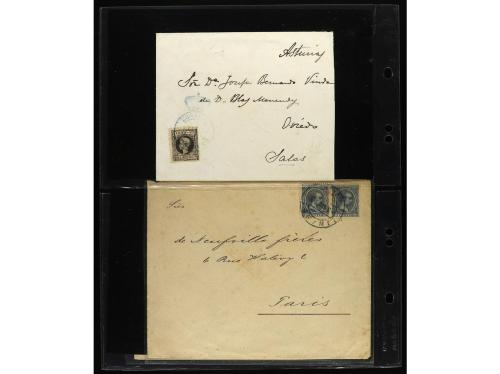 Asturias
Sra Da. Josefa Bernardo Viuda
de D. Blas Menendez
Oviedo
Salas
de Neufville frères
6 Rue Halévy 6
Paris